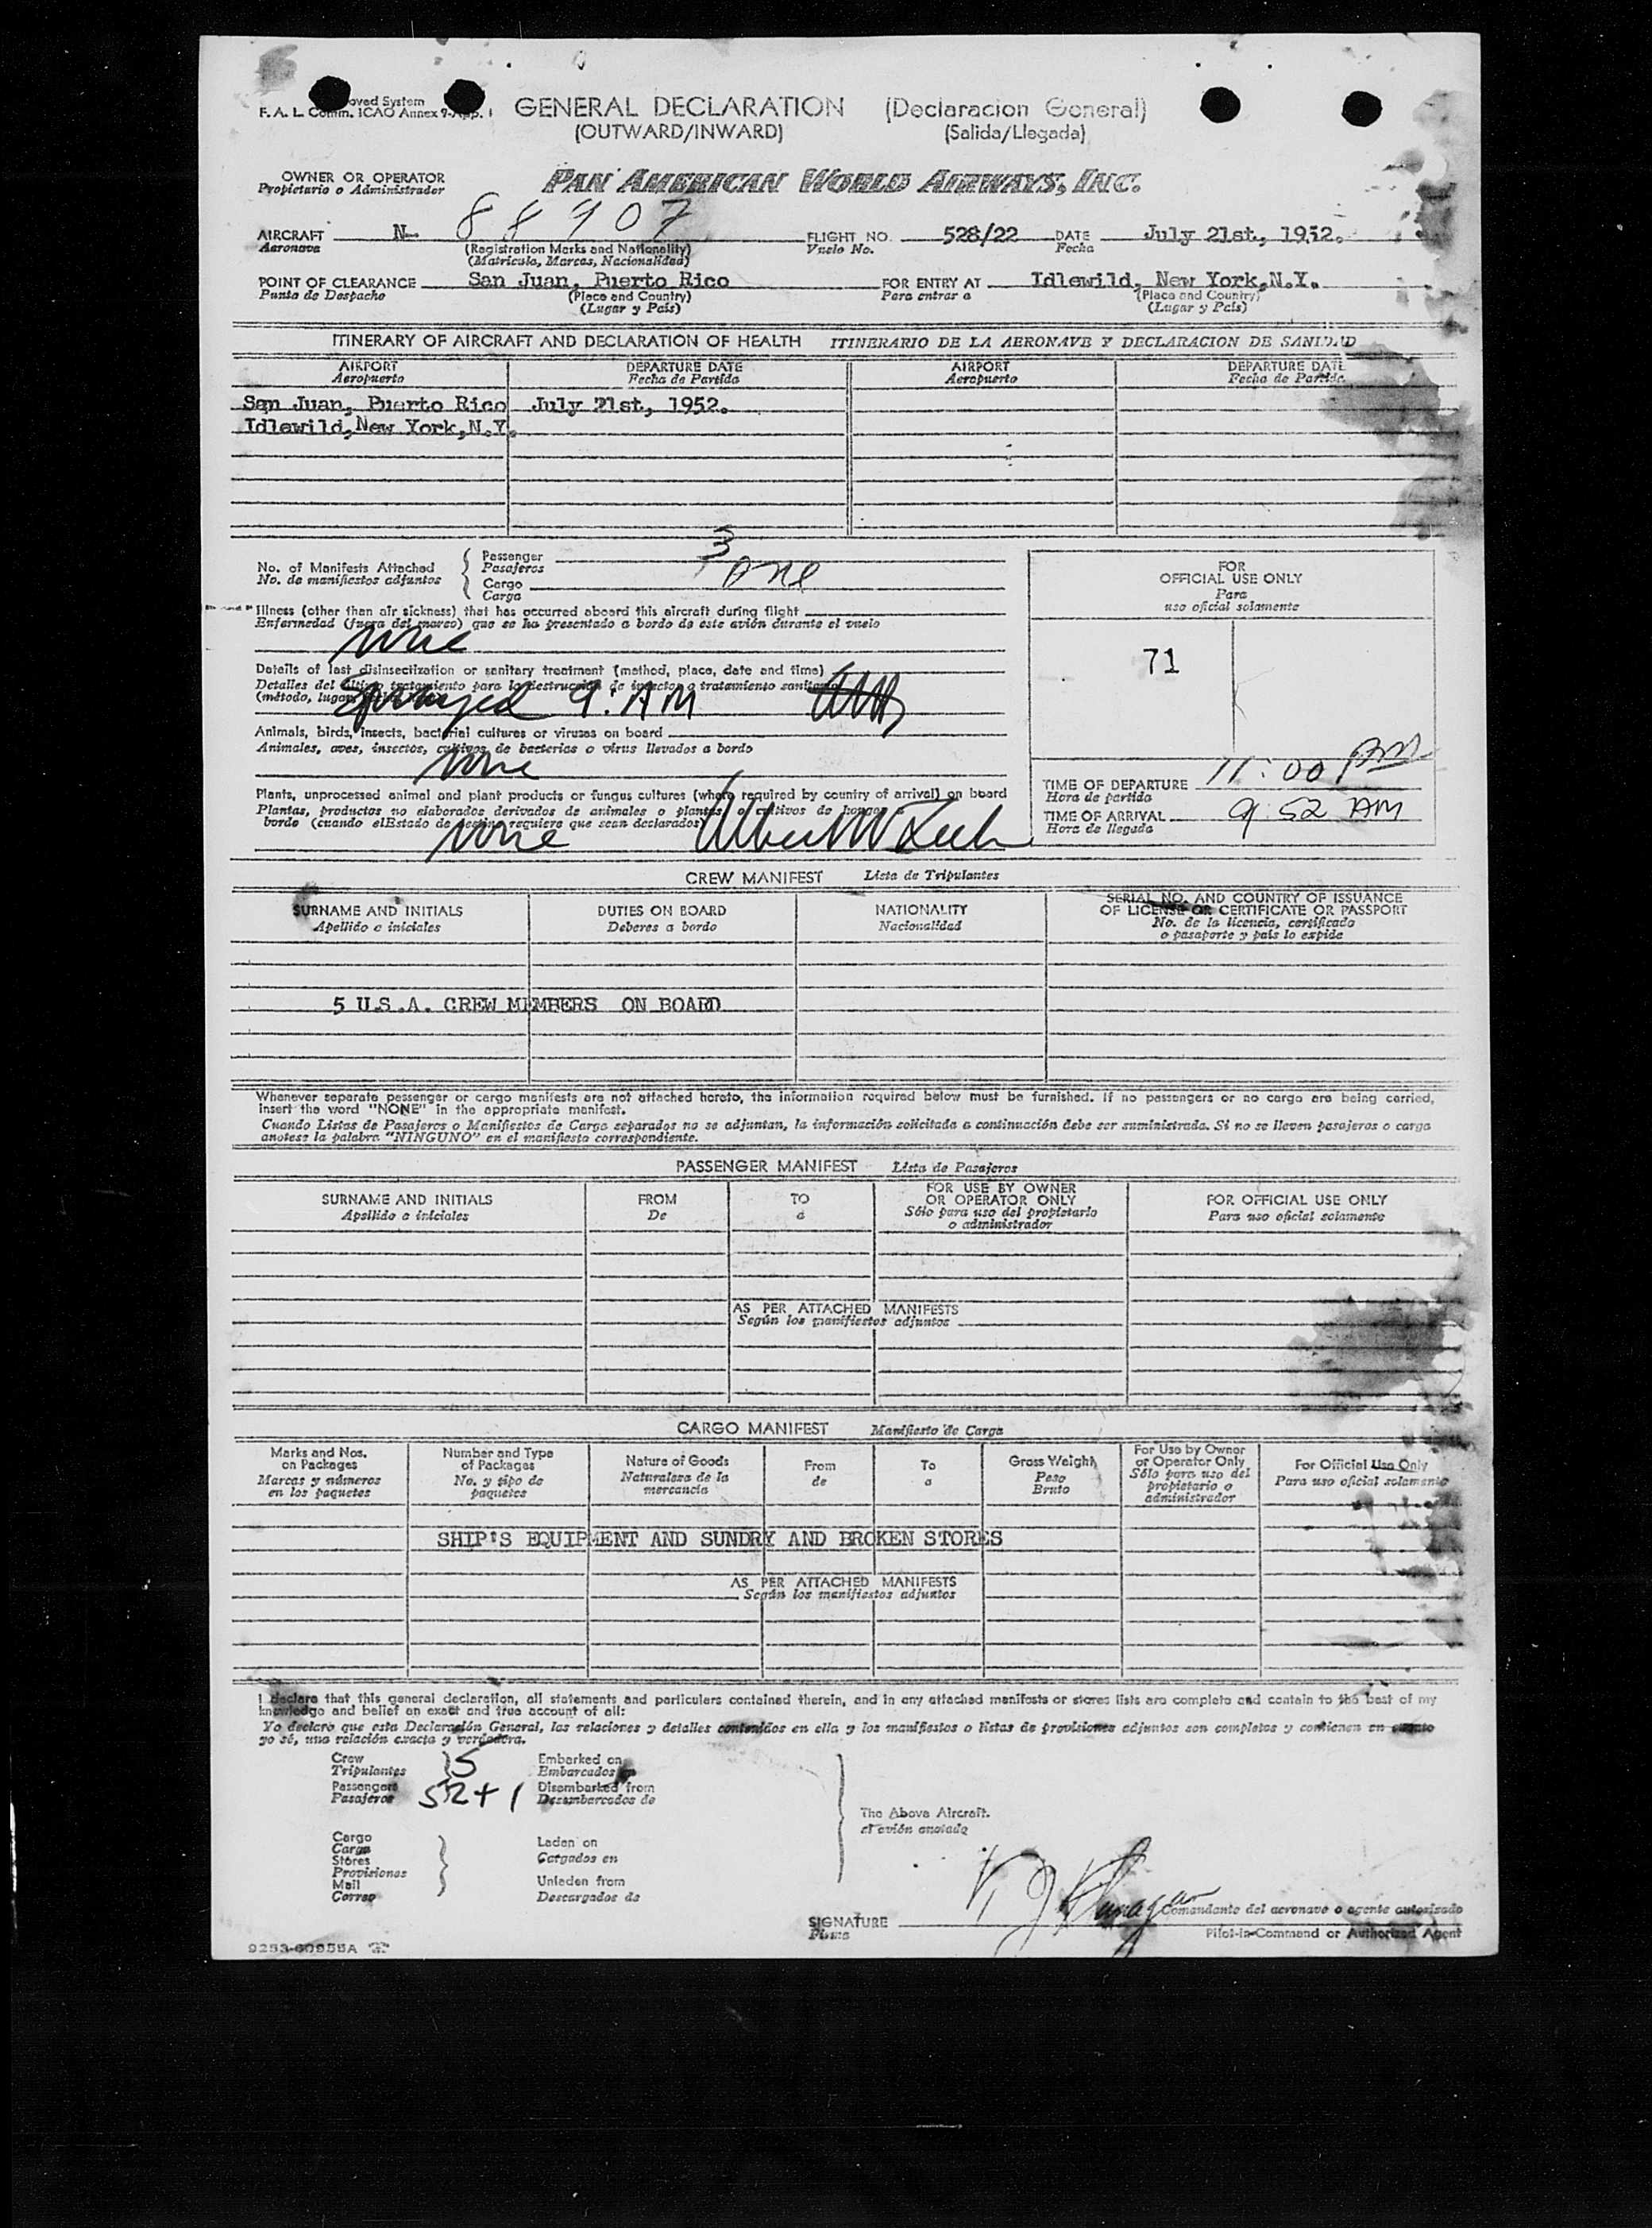 oved System
F. A. L. Comm. ICAO Annex 9-App. 1
GENERAL DECLARATION (Declaracion General)
(OUTWARD/INWARD) (Salida/Llegada)
OWNER OR OPERATOR
Propietario o Administrador
PAN AMERICAN WORLD AIRWAYS, INC.
AIRCRAFT N- 88907 FLIGHT NO. 528/22 DATE July 21st, 1952.
Aeronave (Registration Marks and Nationality) Vuelo No. Fecha
(Matricula, Marcas, Nacionalidad)
POINT OF CLEARANCE San Juan, Puerto Rico FOR ENTRY AT Idlewild, New York,N.Y.
Punto de Despacho (Place and Country) Para entrar a (Place and Country)
(Lugar y País) (Lugar y País)
ITINERARY OF AIRCRAFT AND DECLARATION OF HEALTH ITINERARIO DE LA AERONAVE Y DECLARACION DE SANIDAD
AIRPORT DEPARTURE DATE AIRPORT DEPARTURE DATE
Aeropuerto Fecha de Partida Aeropuerto Fecha de Partida
San Juan, Puerto Rico July 21st, 1952.
Idlewild,New York,N.Y.
No. of Manifests Attached
No. de manifiestos adjuntos
Passenger 3
Pasajeros
Cargo one
Carga
Illness (other than air sickness) that has occurred aboard this aircraft during flight
Enfermedad (fuera del mareo) que se ha presentado a bordo de este avión durante el vuelo
none
Details of last disinsectization or sanitary treatment (method, place, date and time)
Detalles del último tratamiento para la destrucción de insectos o tratamiento sanitario
(método, lugar
Sprayed 9: AM
Animals, birds, insects, bacterial cultures or viruses on board
Animales, aves, insectos, cultivos de bacterias o virus llevados a bordo
none
Plants, unprocessed animal and plant products or fungus cultures (where required by country of arrival) on board
Plantas, productos no elaborados derivados de animales o plantas o cultivos de hongo
bordo (cuando elEstado de destino requiere que sean declarados)
none
FOR
OFFICIAL USE ONLY
Para
uso oficial solamente
71
TIME OF DEPARTURE 11:00 PM
Hora de partida
TIME OF ARRIVAL 9:52 AM
Hora de llegada
CREW MANIFEST Lista de Tripulantes
SURNAME AND INITIALS DUTIES ON BOARD NATIONALITY SERIAL NO. AND COUNTRY OF ISSUANCE
OF LICENSE OR CERTIFICATE OR PASSPORT
Apellido e iniciales Deberes a bordo Nacionalidad No. de la licencia, certificado
o pasaporte y país lo expide
5 U.S.A. CREW MEMBERS ON BOARD
Whenever separate passenger or cargo manifests are not attached hereto, the information required below must be furnished. If no passengers or no cargo are being carried,
insert the word "NONE" in the appropriate manifest.
Cuando Listas de Pasajeros o Manifiestos de Carga separados no se adjuntan, la información solicitada a continuación debe ser suministrada. Si no se lleven pasajeros o carga
anotese la palabra "NINGUNO" en el manifiesto correspondiente.
PASSENGER MANIFEST Lista de Pasajeros
SURNAME AND INITIALS FROM TO FOR USE BY OWNER
OR OPERATOR ONLY FOR OFFICIAL USE ONLY
Apellido e iniciales De a Sólo para uso del propietario
o administrador Para uso oficial solamente
AS PER ATTACHED MANIFESTS
Según los manifiestos adjuntos
CARGO MANIFEST Manifiesto de Carga
Marks and Nos.
on Packages
Marcas y números
en los paquetes
Number and Type
of Packages
No. y tipo de
paquetes
Nature of Goods
Naturaleza de la
mercancia
From
de
To
a
Gross Weight
Peso
Bruto
For Use by Owner
or Operator Only
Sólo para uso del
propietario o
administrador
For Official Use Only
Para uso oficial solamente
SHIP'S EQUIPMENT AND SUNDRY AND BROKEN STORES
AS PER ATTACHED MANIFESTS
Según los manifiestos adjuntos
I declare that this general declaration, all statements and particulars contained therein, and in any attached manifests or stores lists are complete and contain to the best of my
knowledge and belief an exact and true account of all:
Yo declaro que esta Declaración General, las relaciones y detalles contenidos en ella y los manifiestos o listas de provisiones adjuntos son completos y contienen en cuanto
yo sé, una relación exacta y verdadera.
Crew 5 Embarked on
Tripulantes Embarcados en
Passengers 52+1 Disembarked from
Pasajeros Desembarcados de
The Above Aircraft.
el avión anotado
Cargo
Carga
Stores
Provisiones
Mail
Correo
Laden on
Cargados en
Unladen from
Descargados de
SIGNATURE Comandante del aeronave o agente autorizado
Firma Pilot-in-Command or Authorized Agent
9253-60955A